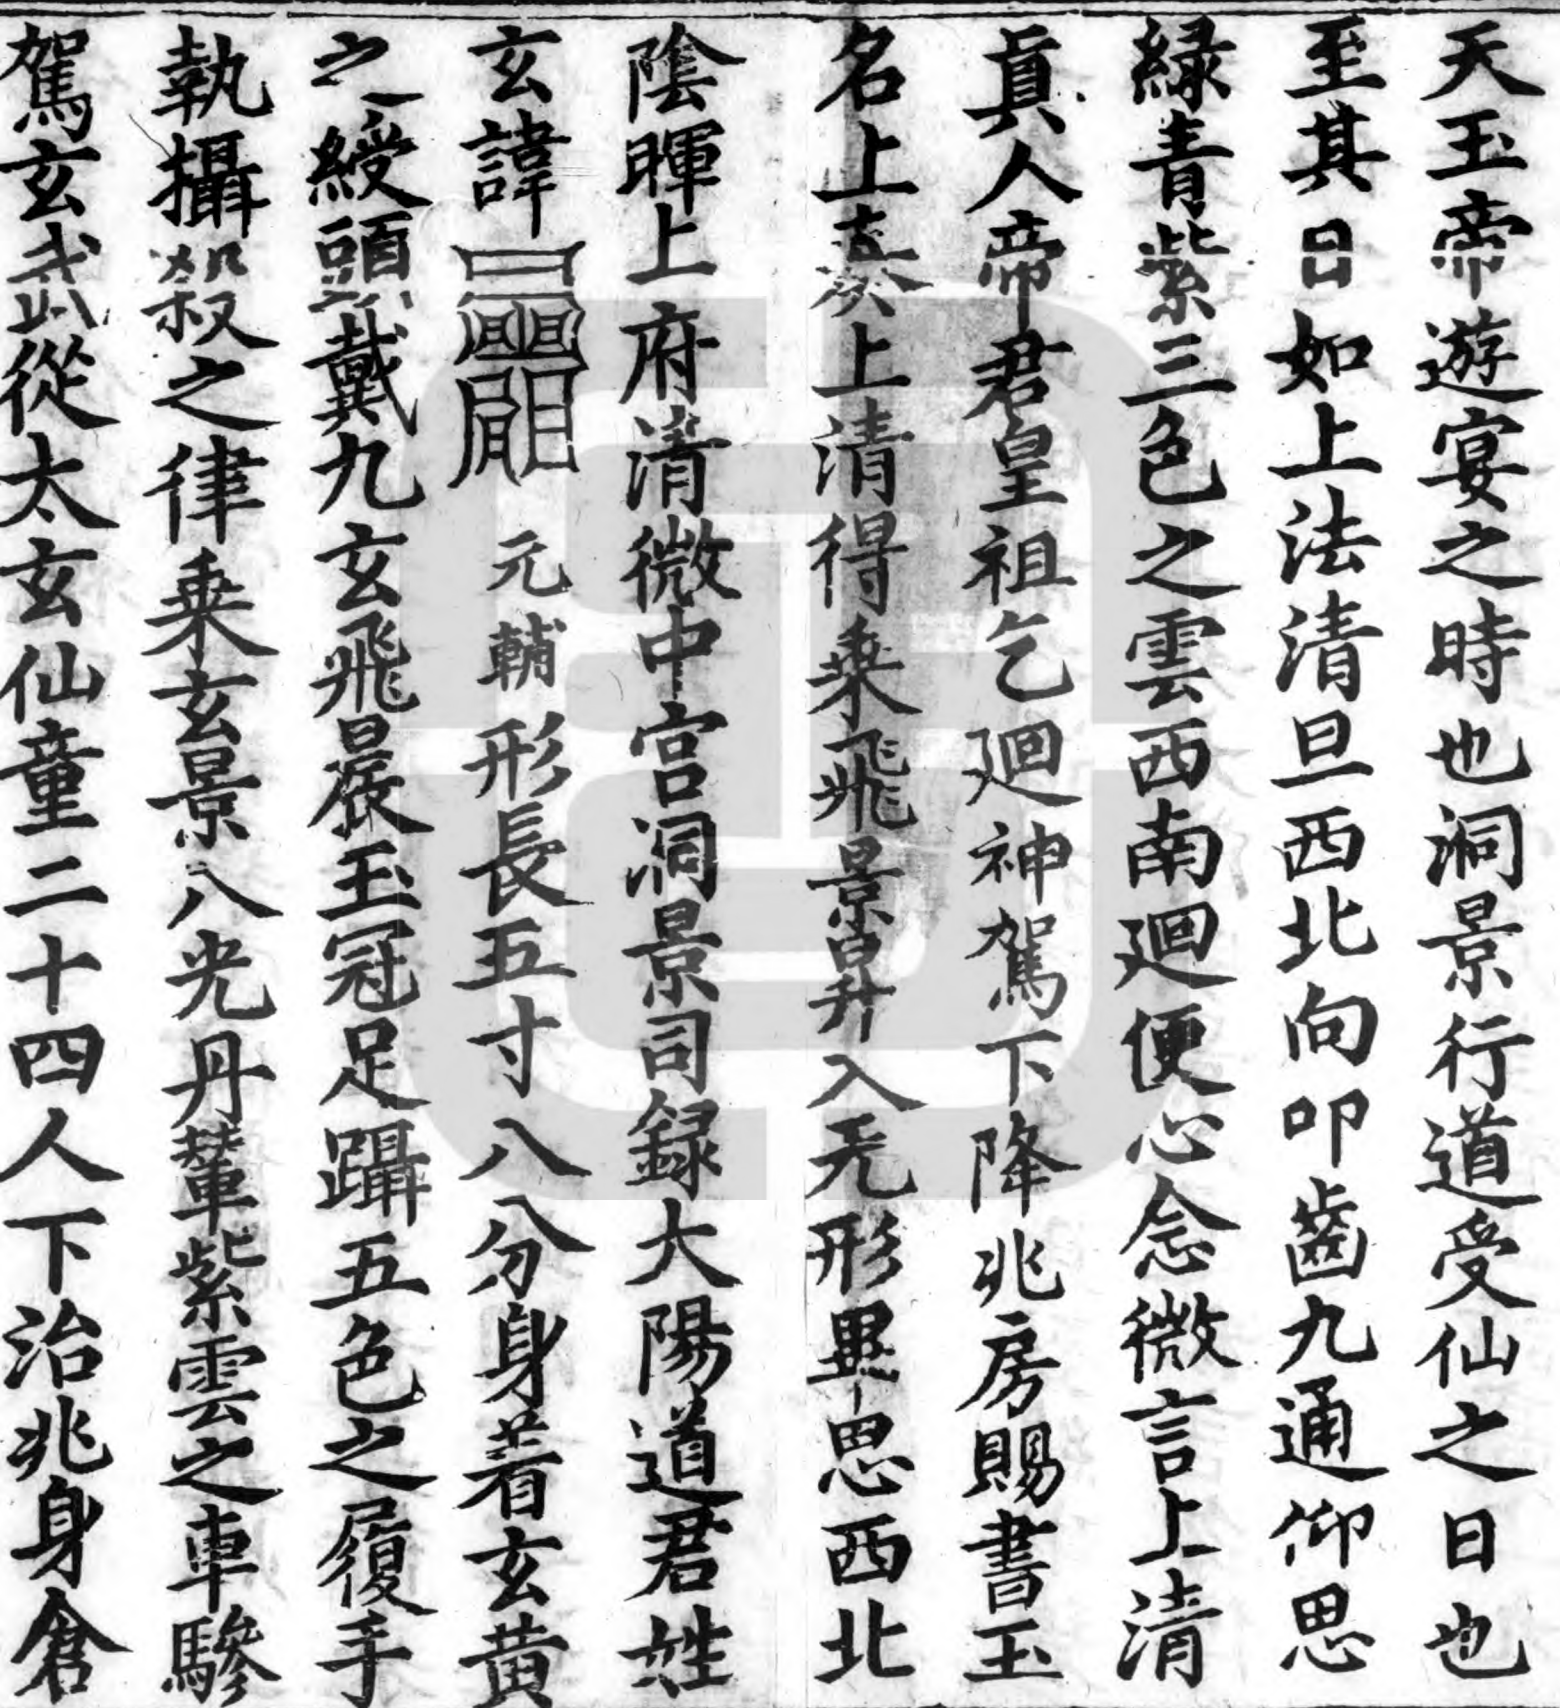 天玉帝遊宴之時也洞景行道受仙之日也
至其日如上法清旦西北向叩齒九通仰思
緑青紫三色之雲西南廻便心念微言上清
真人帝君皇祖乞廻神駕下降兆房賜書玉
名上奏上清得乗飛景昇入无形畢思西北
陰暉上府清微中宮洞景司録大陽道君姓
玄諱元輔形長五寸八分身著玄黄
之綬頭戴九玄飛晨玉冠足躡五色之履手
執攝殺之律乗玄景八光丹輦紫雲之車驂
駕玄武從太玄仙童二十四人下治兆身倉